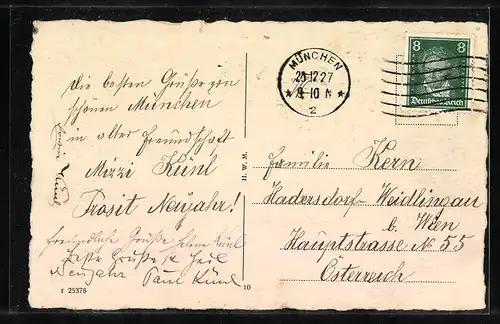 Die besten Grüße von
schönen München
in alter Freundschaft
Mizzi Künl
Prosit Neujahr!
freundliche Grüße Künl
beste Grüße & Heil
Neujahr Paul Künl
r 25378
10
H. W. M.
MÜNCHEN
28.12.27
2
8 8
Deutsches Reich
Familie Kern
Hadersdorf-Weidlingau
b. Wien
Hauptstrasse № 55
Österreich